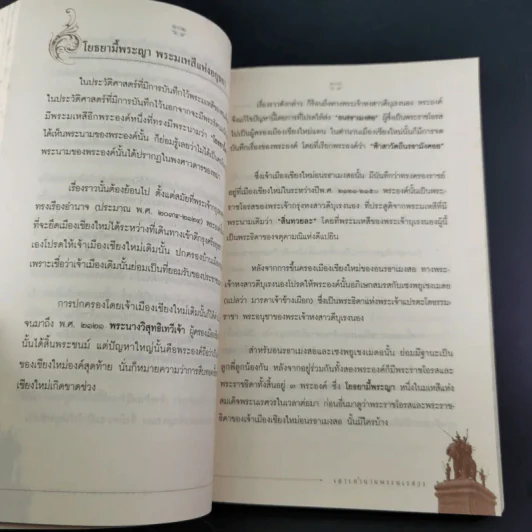 โยธยามี้พระญา พระมเหสีแห่งอยุธยา
ในประวัติศาสตร์ที่มีการบันทึกไว้พระมเหสีของ
ในประวัติศาสตร์ที่มีการบันทึกไว้นอกจากจะมีพระ
มีพระมเหสีอีกพระองค์หนึ่งที่ทรงมีพระนามว่า
ได้เห็นพระนามของพระองค์นั้น ก็ย่อมรู้เลยว่าไม่ได้เป็น
พระนามของพระองค์นั้นได้ปรากฏในพงศาวดารของ
เรื่องราวนั้นต้องย้อนไป ตั้งแต่สมัยที่พระเจ้ากรุง
ทรงเรืองอำนาจ (ประมาณ พ.ศ. ๒๐๙๔-๒๑๒๔)
ที่จะยึดเมืองเชียงใหม่ได้ระหว่างที่เดินทางเข้าตีกรุงศรีอยุธยา
เองโปรดให้เจ้าเมืองเชียงใหม่เดิมนั้น ปกครองบ้านเมือง
เพราะเชื่อว่าเจ้าเมืองเดิมนั้นย่อมเป็นที่ยอมรับของประชา
การปกครองโดยเจ้าเมืองเชียงใหม่เดิมนั้นก็ได้
จนมาถึง พ.ศ. ๒๑๒๑ พระนางวิสุทธิเทวีเจ้า ผู้ครองเมือง
นั้นได้สิ้นพระชนม์ แต่ปัญหาใหญ่นั้นคือพระองค์ถือว่า
ของเชียงใหม่องค์สุดท้าย นั่นก็หมายความว่าการสืบ
เชียงใหม่เกิดขาดช่วง
เรื่องราวดังกล่าว ก็ร้อนถึงทางพระเจ้าหงสาวดีบุเรงนอง พระองค์
จึงแก้ไขปัญหานี้โดยการที่โปรดให้ส่ง "อนรธาเมงสอ" ผู้ซึ่งเป็นพระราชโอรส
ไปเป็นผู้ครองเมืองเชียงใหม่แทน ในตำนานเมืองเชียงใหม่นั้นก็มีการจด
บันทึกเรื่องของพระองค์ โดยที่เรียกพระองค์ว่า
ซึ่งเจ้าเมืองเชียงใหม่อนรธาเมงสอนั้น มีบันทึกว่าทรงครองราชย์
อยู่ที่เมืองเชียงใหม่ในระหว่างปีพ.ศ. ๒๑๒๑-๒๑๕๐ พระองค์นั้นเป็นพระ-
ราชโอรสของพระเจ้ากรุงหงสาวดีบุเรงนอง ที่ประสูติจากพระมเหสีที่มี
พระนามเดิมว่า "สิ่นทวยละ" โดยที่พระมเหสีของพระเจ้าบุเรงนองผู้นี้
เป็นพระธิดาของจตุคามณีแห่งดีแปยิน
หลังจากการขึ้นครองเมืองเชียงใหม่ของอนรธาเมงสอ ทางพระ-
เจ้าหงสาวดีบุเรงนองโปรดให้พระองค์นั้นอภิเษกสมรสกับเซงพยูเชงเมดอ
(แปลว่า มารดาเจ้าช้างเผือก) ซึ่งเป็นพระธิดาแห่งพระเจ้าแปรตะโดธรรม-
ราชา พระอนุชาของพระเจ้าหงสาวดีบุเรงนอง
สำหรับอนรธาเมงสอและเซงพยูเชงเมดอนั้น ย่อมมีฐานะเป็น
ลูกพี่ลูกน้องกัน หลังจากอยู่ร่วมกันทั้งสองพระองค์ก็มีพระราชโอรสและ
พระราชธิดาทั้งสิ้นอยู่ ๓ พระองค์ ซึ่ง โยธยามี้พระญา หนึ่งในมเหสีแห่ง
สมเด็จพระนเรศวรในเวลาต่อมา ก่อนอื่นมาดูว่าพระราชโอรสและพระราช-
ธิดาของเจ้าเมืองเชียงใหม่อนรธาเมงสอ นั้นมีใครบ้าง